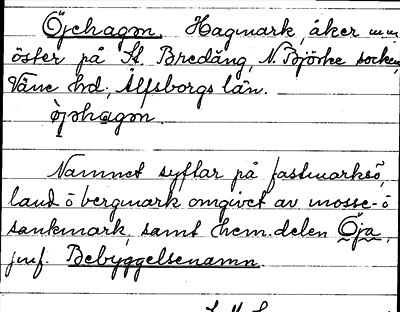 Öjehagen. Hagmark, åker m m
öster på St. Bredäng, N. Björke socken,
Väne hd, Älfsborgs län.
òjəhagən.
Namnet syftar på fastmarksö,
land o bergmark omgivet av mosse- o
sankmark, samt hem.delen Öja,
jmf. Bebyggelsenamn